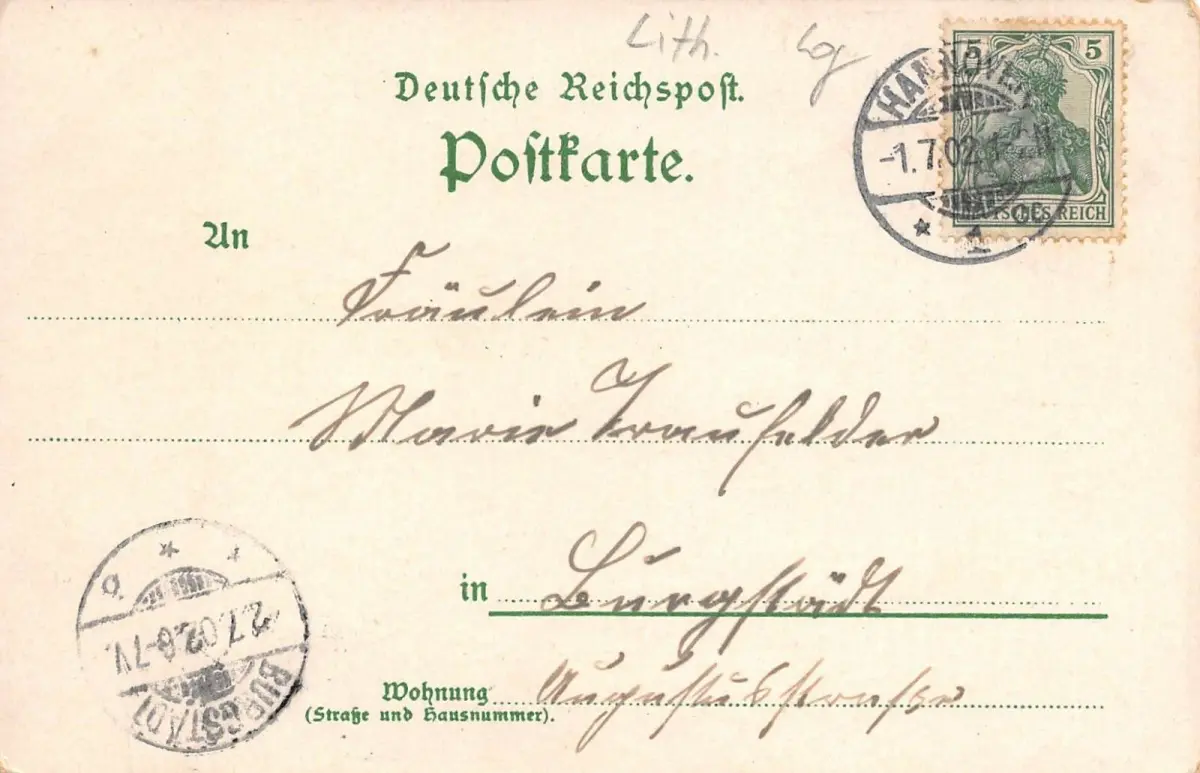 Lith.
Deutsche Reichspost.
Postkarte.
5 5
DEUTSCHES REICH
HANNOVER
-1.7.02.
* 1 cc
An
Fräulein
Marie Traufelder
in Burgstädt
Wohnung Augustusstrasse
(Straße und Hausnummer).
2.7.02.6-7V.
BURGSTÄDT